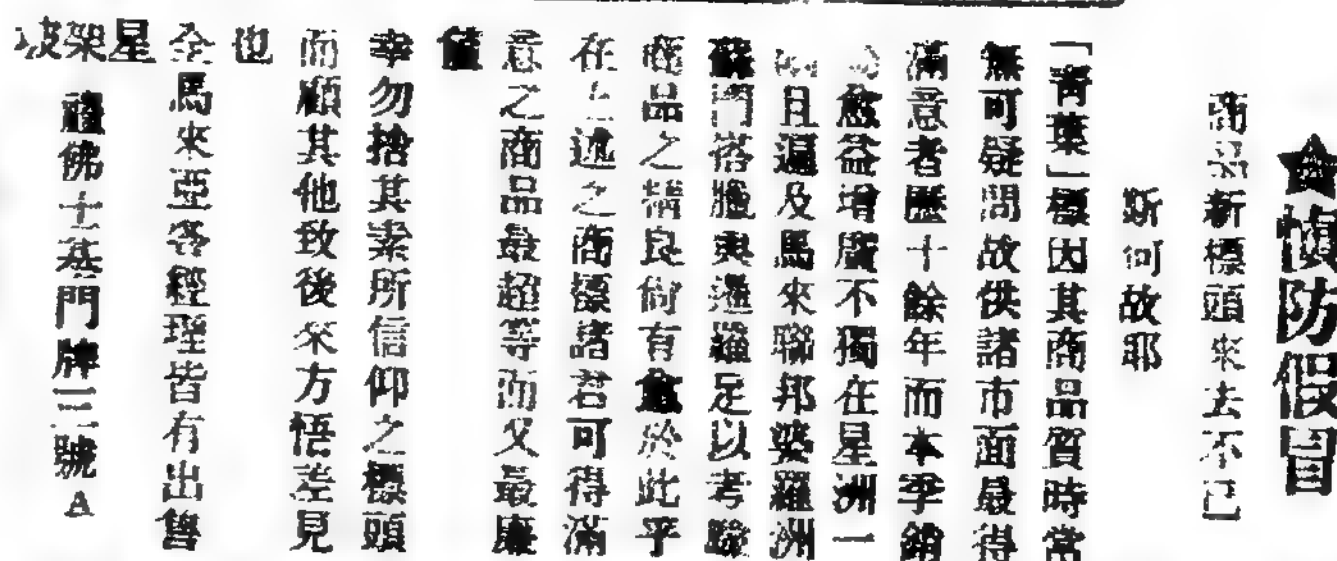 ★慎防假冒
商品新標頭來去不已
斯何故耶
「青葉」標因其商品質時常
無可疑問故供諸市面最得
滿意者歷十餘年而本季銷
愈益增廣不獨在星洲一
且遍及馬來聯邦婆羅洲
蘇門答臘與暹羅足以考驗
商品之精良尙有愈於此乎
在上述之商標諸君可得滿
意之商品最超等而又最廉
值
幸勿捨其素所信仰之標頭
而顧其他致後來方悟差見
也
全馬來亞各經理皆有出售
星架坡
佛士基門牌三號A